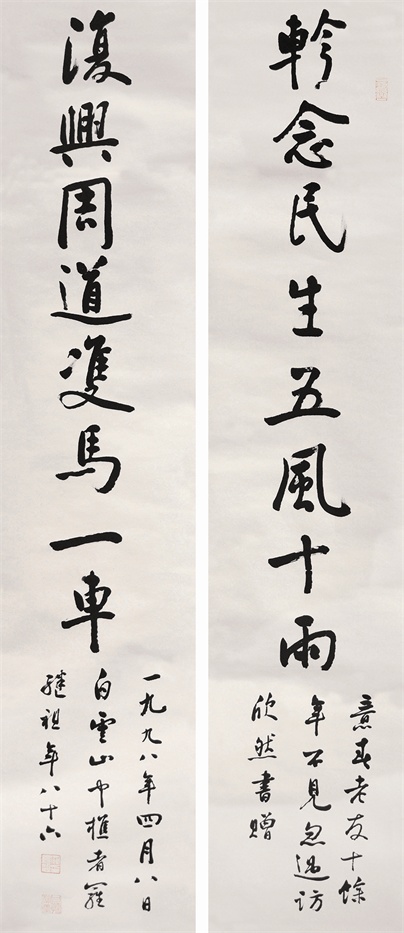 軫念民生五風十雨
意老友十餘
年不見忽過訪
欣然書贈
復興周道雙馬一車
一九九八年四月八日
白雲山中樵者羅
継祖年八十六